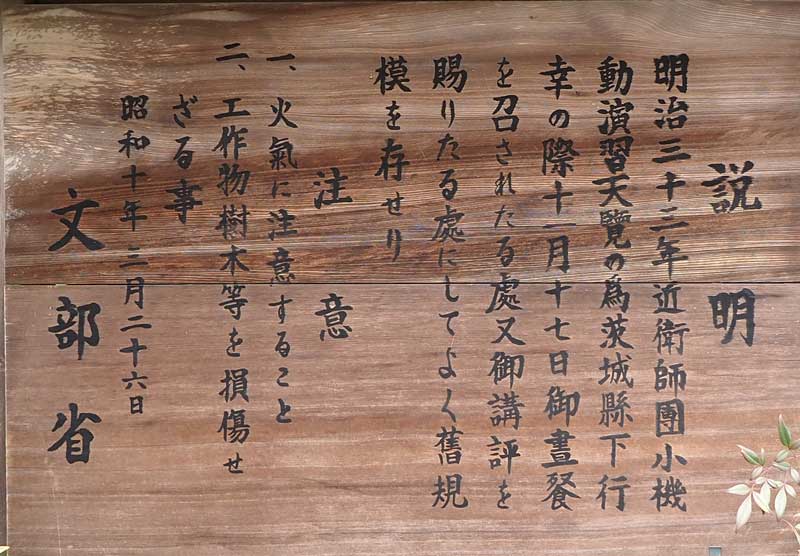 説明
明治三十三年近衛師團小機
動演習天覽の爲茨城縣下行
幸の際十一月十七日御晝餐
を召されたる處又御講評を
賜りたる處にしてよく舊規
模を存せり
注意
一、火氣に注意すること
二、工作物樹木等を損傷せ
ざる事
昭和十年三月二十六日
文部省